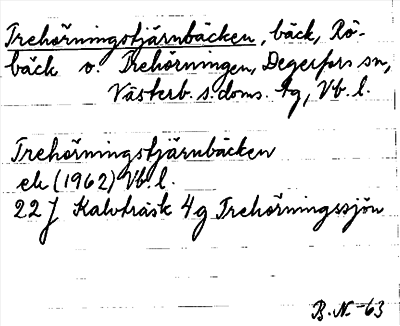 Trehörningstjärnbäcken, bäck, Rö-
bäck v. Trehörningen, Degerfors sn,
Västerb. s. doms. tg, Vb. l.
Trehörningstjärnbäcken
ek (1962) Vb. l.
22 J Kalvträsk 4 g Trehörningssjön
B. N. -63